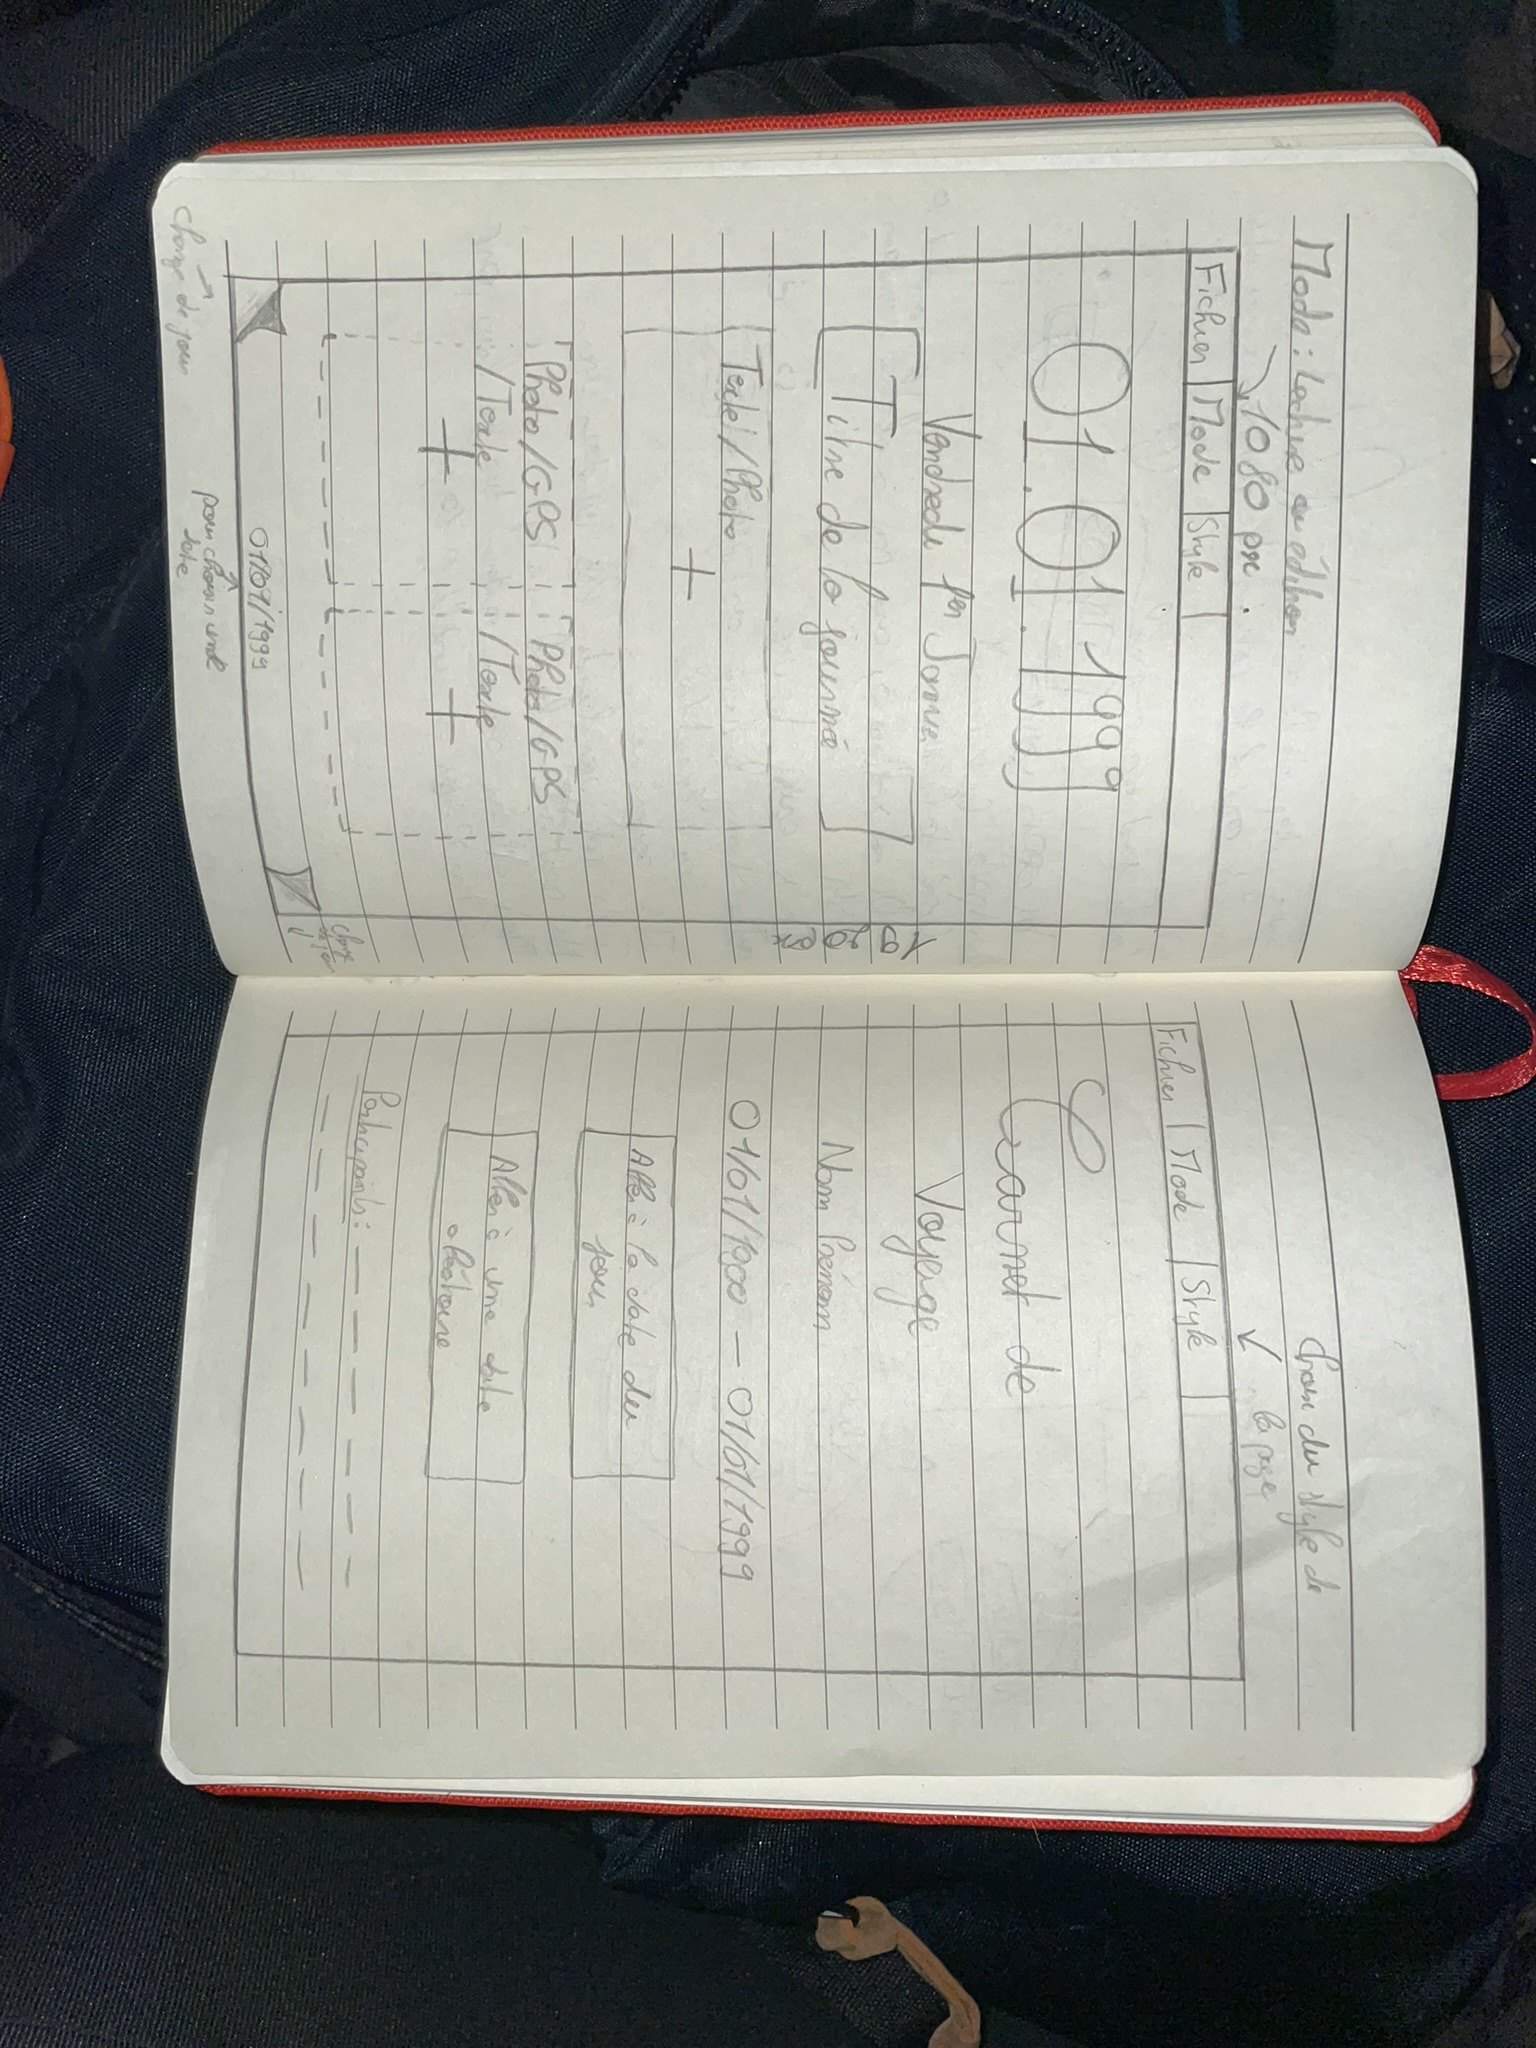 Mode : Lecture ou édition
1080 px.
Fichier | Mode | Style |
01.01.1999
Vendredi 1er Janvier
Titre de la journée
Texte/Photo
+
Photo/GPS
/Texte
+
Photo/GPS
/Texte
+
01/01/1999
1920 px
change de jour
pour choisir une
date
change
de jour
Choix du style de
la page
Fichier | Mode | Style |
Carnet de
Voyage
Nom Prénom
01/01/1900 — 01/01/1999
Aller à la date du
jour
Aller à une date
aléatoire
Participants :